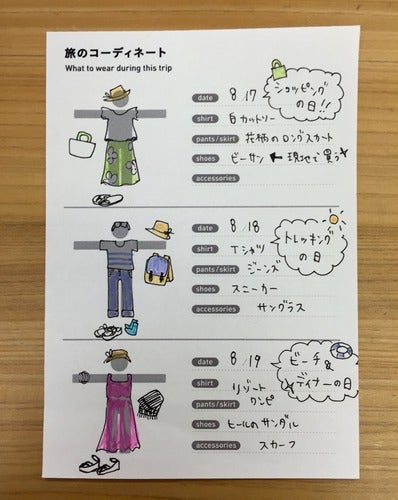 旅のコーディネート
What to wear during this trip
date 8/17
ショッピング
の日!!
shirt 白カットソー
pants/skirt 花柄のロングスカート
shoes ビーサン ← 現地で買う
accessories
date 8/18
トレッキング
の日
shirt Tシャツ
pants/skirt ジーンズ
shoes スニーカー
accessories サングラス
date 8/19
ビーチ&
ディナーの日
shirt リゾート
ワンピ
pants/skirt
shoes ヒールのサンダル
accessories スカーフ